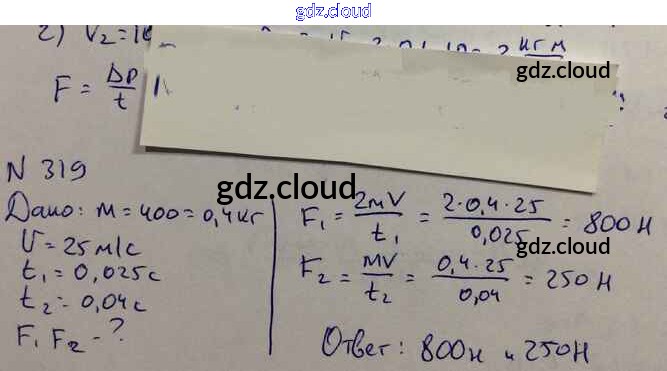 gdz.cloud
2) V₂=
кг м
gdz.cloud
F = Δp/t
gdz.cloud
N 319
gdz.cloud
Дано: m = 400 = 0,4 кг
V = 25 м/с
t₁ = 0,025 с
t₂ = 0,04 с
F₁ F₂ - ?
F₁ = 2mV/t₁ = 2·0,4·25/0,025 = 800 Н
gdz.cloud
F₂ = mV/t₂ = 0,4·25/0,04 = 250 Н
gdz.cloud
Ответ: 800н и 250Н